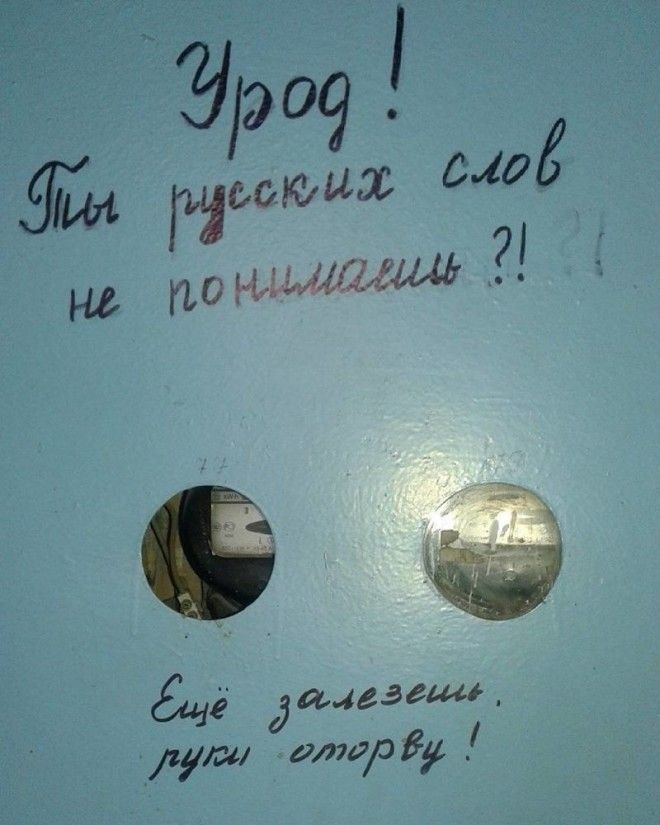 Урод!
Ты русских слов
не понимаешь?!
77
Ещё залезешь,
руки оторву!